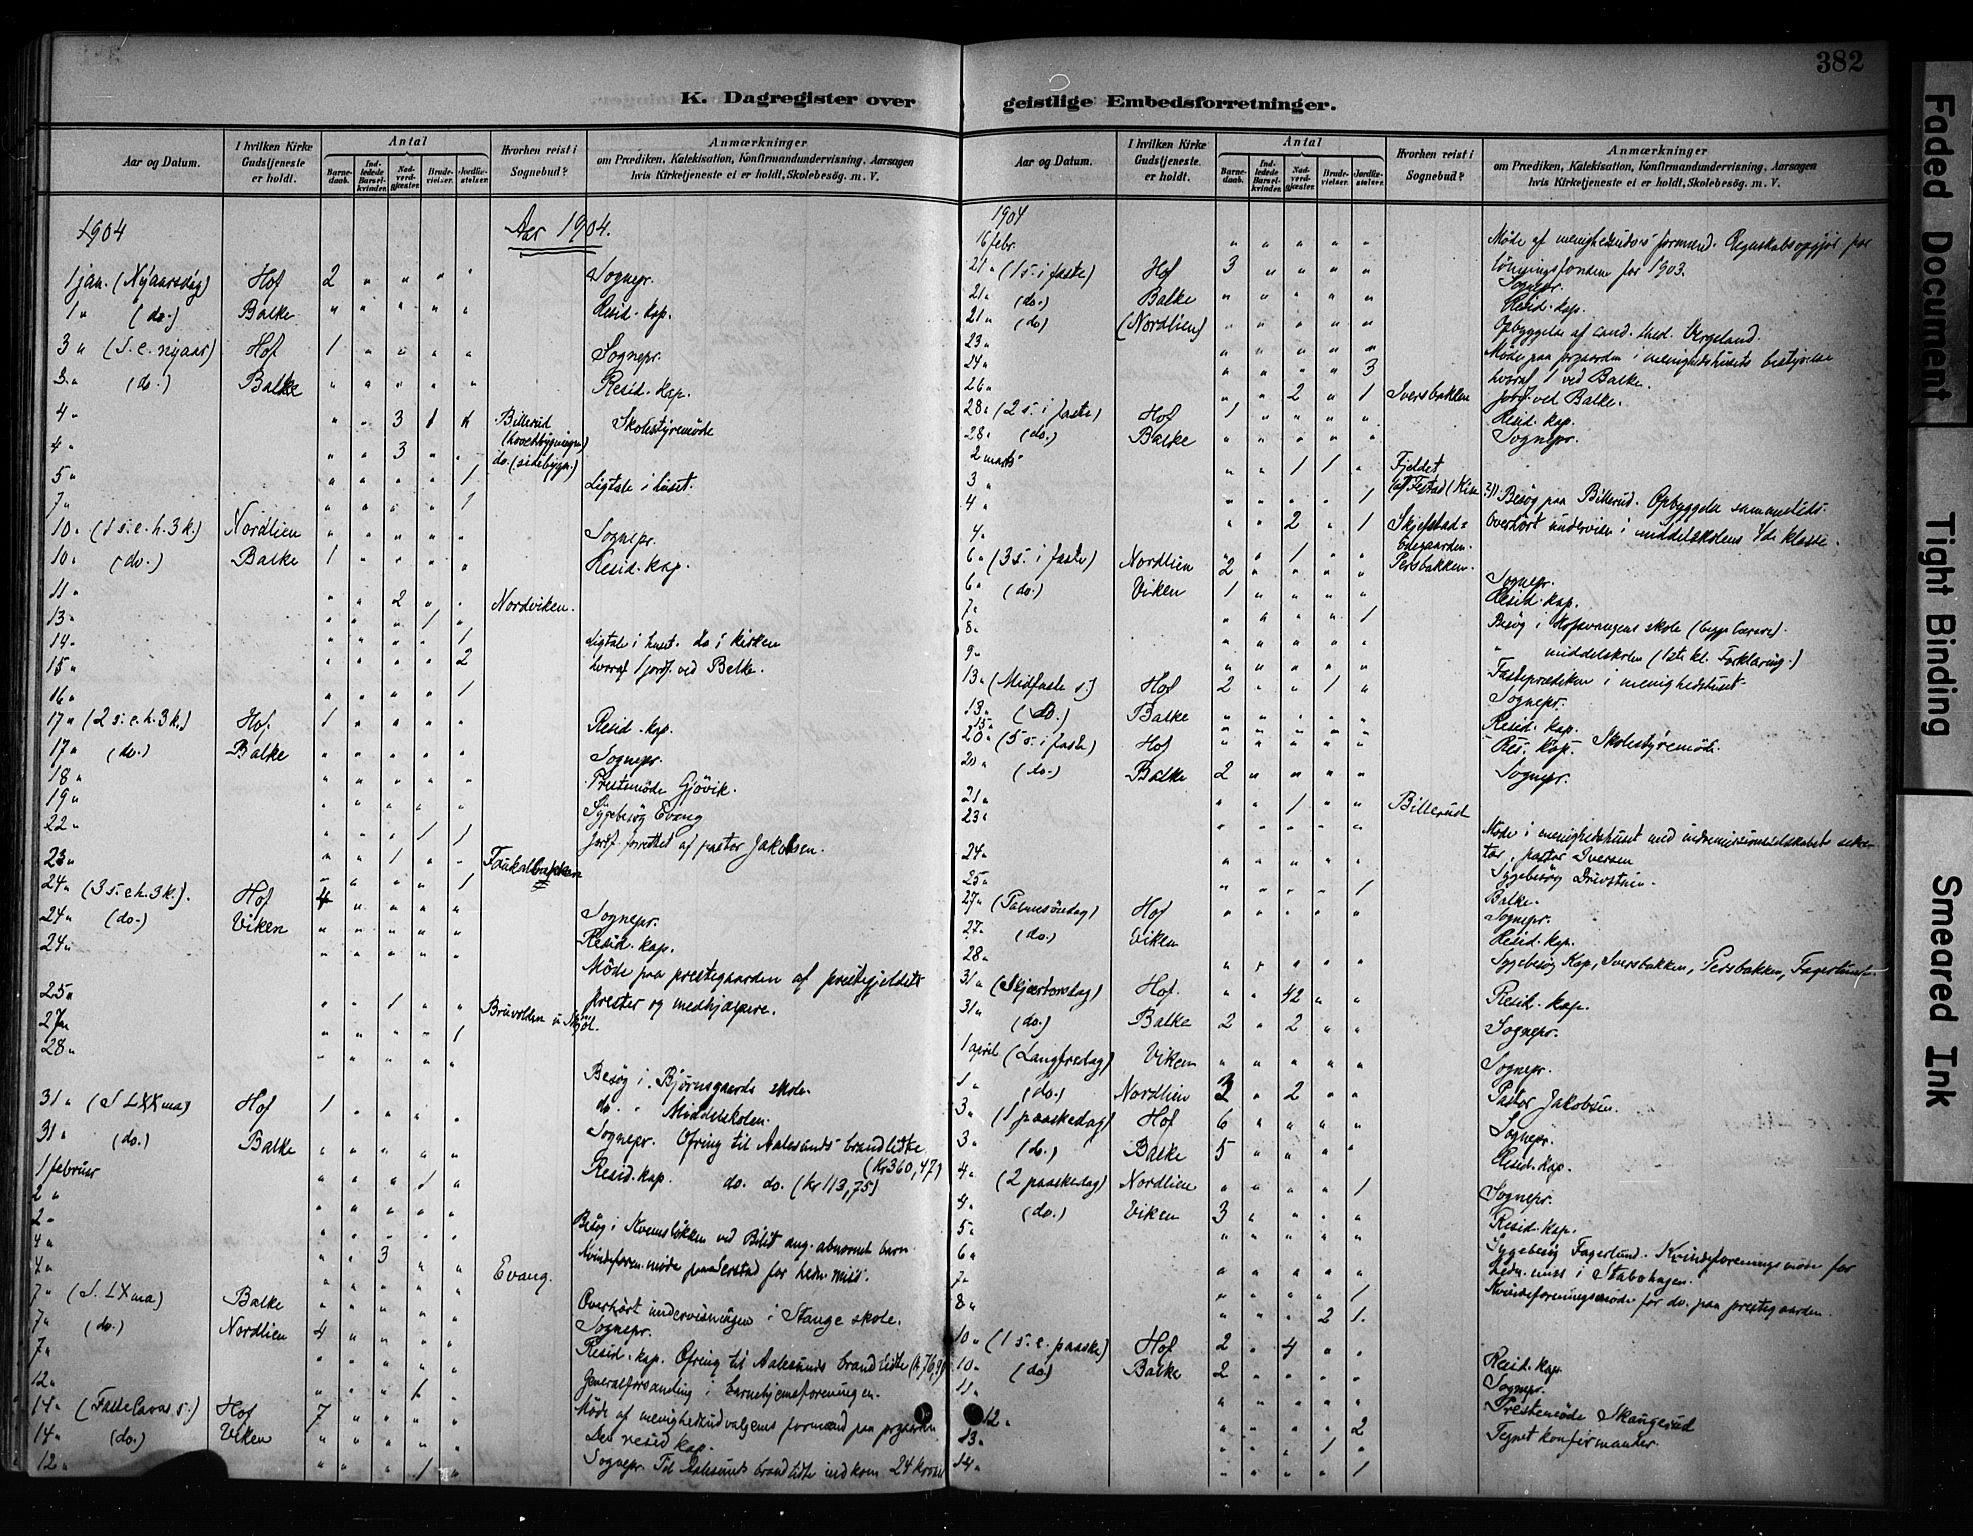 382
K. Dagregister over geistlige Embedsforretninger.
Aar og Datum.
I hvilken Kirke Gudstjeneste er holdt.
Antal
Barnedaab.
Indledede Barselkvinder.
Nadverdgjæster.
Brudevielser.
Jordfæstelser.
Hvorhen reist i Sognebud?
Anmærkninger
om Prædiken, Katekisation, Konfirmandundervisning, Aarsagen
hvis Kirketjeneste ei er holdt, Skolebesøg. m. V.
1904
Aar 1904.
1 jan. (Nyaarsdag) Hof 2 " " " " Sognepr.
1 " (do.) Balke " " " " " Resid. kap.
3 " (S. e. nyaar) Hof 1 " " " " Sognepr.
3 " (do.) Balke " " " " " Resid. kap.
4 " " " 3 Billerud Skolestyremöde
(hovedbygningen)
4 " " " 3 " " do. (sidebygn.)
5 " " " " " 1 Ligtale i huset.
7 " " " " " 1
10 " (1 s. e. h. 3 k.) Nordlien " " " " " Sognepr.
10 " (do.) Balke 1 " " " " Resid. kap.
11 " " " 2 " " Nordviken.
13 " " " " 1 "
14 " " " " " 1 Ligtale i huset. do i kirken
15 " " " " " 2 hvoraf 1 jordf. ved Balke.
16 " " " " " 1
17 " (2 s. e. h. 3 k.) Hof. 1 " " " " Resid. kap.
17 " (do.) Balke " " " " " Sognepr.
18 " " " " " " Prestemöde Gjövik.
19 " " " " " " Sygebesög Evang
22 " " " " 1 1 Jordf. forrettet af pastor Jakobsen.
23 " " " 1 " " Faukalbakken
24 " (3 s. e. h. 3 k.). Hof 4 " " " " Sognepr.
24 " (do.) Viken " " " " " Resid. kap.
24 " " " " " " Möde paa prestegaarden af prestegjeldets
prester og medhjælpere.
25 " " " 1 " "
27 " " " " " 1
28 " " " " " " Besög i Bjørnsgaards skole
do. " Middelskolen.
31 " (S. LXXma) Hof 1 " " " " Sognepr. Ofring til Aalesunds brandlidte
(Kr 360,47)
31 " (do.) Balke " " " " " Resid. kap. do. do. (kr 113,75)
1 februar " " " 1 "
2 " " " " " "
2 " " " " " " Besög i Kvemsløkken ved Bilit ang. abnormt barn
4 " " " 3 " " Evang.
4 " " " " " "
7 " (S. LXma) Balke " " " " " Overhört undervisningen i Stange skole.
7 " (do.) Nordlien 4 " " " " Sognepr.
7 " " " " " " Resid. kap. Ofring til Aalesunds brandlidte
12 " Generalforsamling i barnehjemsforeningen.
14 " (Fastelavns s.) Hof 7 " " " " Möde af menighedsudvalgenes formænd paa prgaarden
14 " (do.) Viken " " " " " Den resid kap.
12 " " " " 1 " Sognepr. Til Aalesunds brandlidte indkom 24 kroner
1904
16 febr. " " " " " Möde af menighedsudv.s formænd. Regnskabsopgjör for
lönningsfondene for 1903.
21 " (1 s. i faste) Hof 3 " " " " Sognepr.
21 " (do.) Balke " " " " " Resid. kap.
21 " (do) (Nordlien) " " " " " Opbyggelse af cand. theol. Vergeland.
23 " " " " " " Möde paa prgaarden i menighedshusets bestyrelse
24 " " " " " 3 hvoraf 1 ved Balke.
26 " " " 2 " 1 Iversbakken Jordf. ved Balke.
28 " (2 s. i faste) Hof 1 " " " " Resid. kap.
28 " (do.) Balke " " " " " Sognepr.
2 marts " " 1 1 " Fjeldet
3 " " " " " 1
4 " " " 2 " 1 Skjefstad-
ödegaarden.
Besög paa Billerud. Opbyggelse sammesteds.
4 " " " 1 " " Persbakken. Overhört undervisn. i middelskolens 4de klasse.
6 " (3 s. i faste) Nordlien 2 " " " " Sognepr.
6 " (do.) Viken 1 " " " " Resid. kap.
7 " " " " " 1
8 " " " " " " Besög i Hofsvangens skole (begge lærere).
9 " " " " " " " middelskolen (1ste kl. Forklaring.)
Fasteprædiken i menighedshuset
13 " (Midfaste s.) Hof 2 " " 1 " Sognepr.
13 " (do.) Balke " " " " " Resid. kap.
15 " " " " " " Skolestyremöde.
20 " (5 s. i faste) Hof " " " " " Res. kap.
20 " (do.) Balke 2 " " " " Sognepr.
21 " " " 1 " " Billerud
23 " " " " " " Möde i menighedshuset med indremissionsselskabets sekre-
tær, pastor Iversen
24 " " " " " " Sygebesög Drivstuen.
25 " " " " " 1 Balke.
27 " (Palmesöndag) Hof " " " " " Sognepr.
27 " (do.) Viken " " " " " Resid. kap.
28 " " " " " " Sygebesög Kap, Iversbakken, Persbakken, Fagerlund
31 " (Skjærtorsdag) Hof. " " 42 " " Resid. kap.
31 " (do.) Balke 2 " 2 " " Sognepr.
1 april (Langfredag) Viken " " " " " Sognepr.
1 " (do.) Nordlien 3 " 2 " " Pastor Jakobsen.
3 " (1 paaskedag) Hof 6 " " " " Sognepr.
3 " (do.) Balke 5 " " " " Resid. kap.
4 " (2 paaskedag) Nordlien " " " " 1 Sognepr.
4 " (do.) Viken 3 " " " " Resid. kap.
5 " " " " " " Sygebesög Fagerlund. Kvindeforeningsmöde for
hedn. miss i Stabohagen.
6 " " " " " " Kvindeforeningsmöde for do. paa prestegaarden.
7 " " " " " 1
8 " " " " 2 1.
10 " (1 s. e. paaske) Hof 2 " 4 " " Resid. kap.
10 " (do.) Balke 2 " " " " Sognepr.
11 " " " " " " Prestemöde Skangerud
12 " " " " " 2 Tegnet konfirmanter.
13 " " " " 1 "
14 " " " " " 1
Faded Document
Tight Binding
Smeared Ink